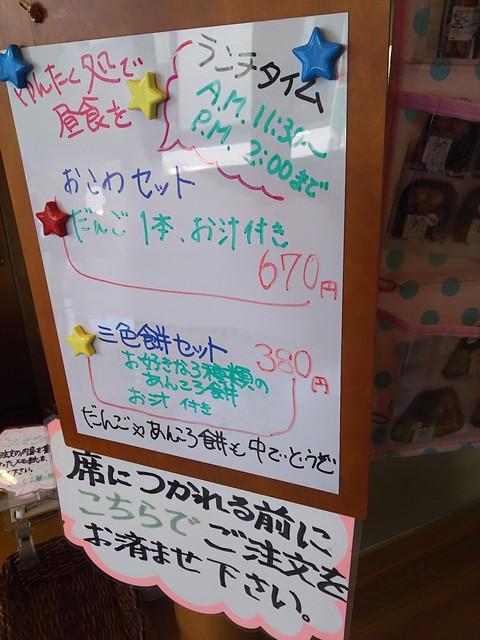 ゆんたく処で
昼食を
ランチタイム
A.M. 11:30〜
P.M. 2:00まで
おこわセット
だんご1本、お汁付き
670円
三色餅セット
380円
お好きな3種類の
あんころ餅
お汁付き
だんごやあんころ餅も中でどうぞ
席につかれる前に
こちらでご注文を
お済ませ下さい。